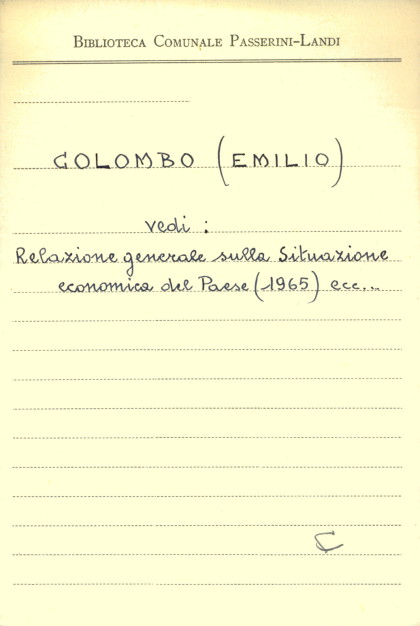 BIBLIOTECA COMUNALE PASSERINI-LANDI
COLOMBO (EMILIO)
vedi :
Relazione generale sulla Situazione
economica del Paese (1965) ecc...
C